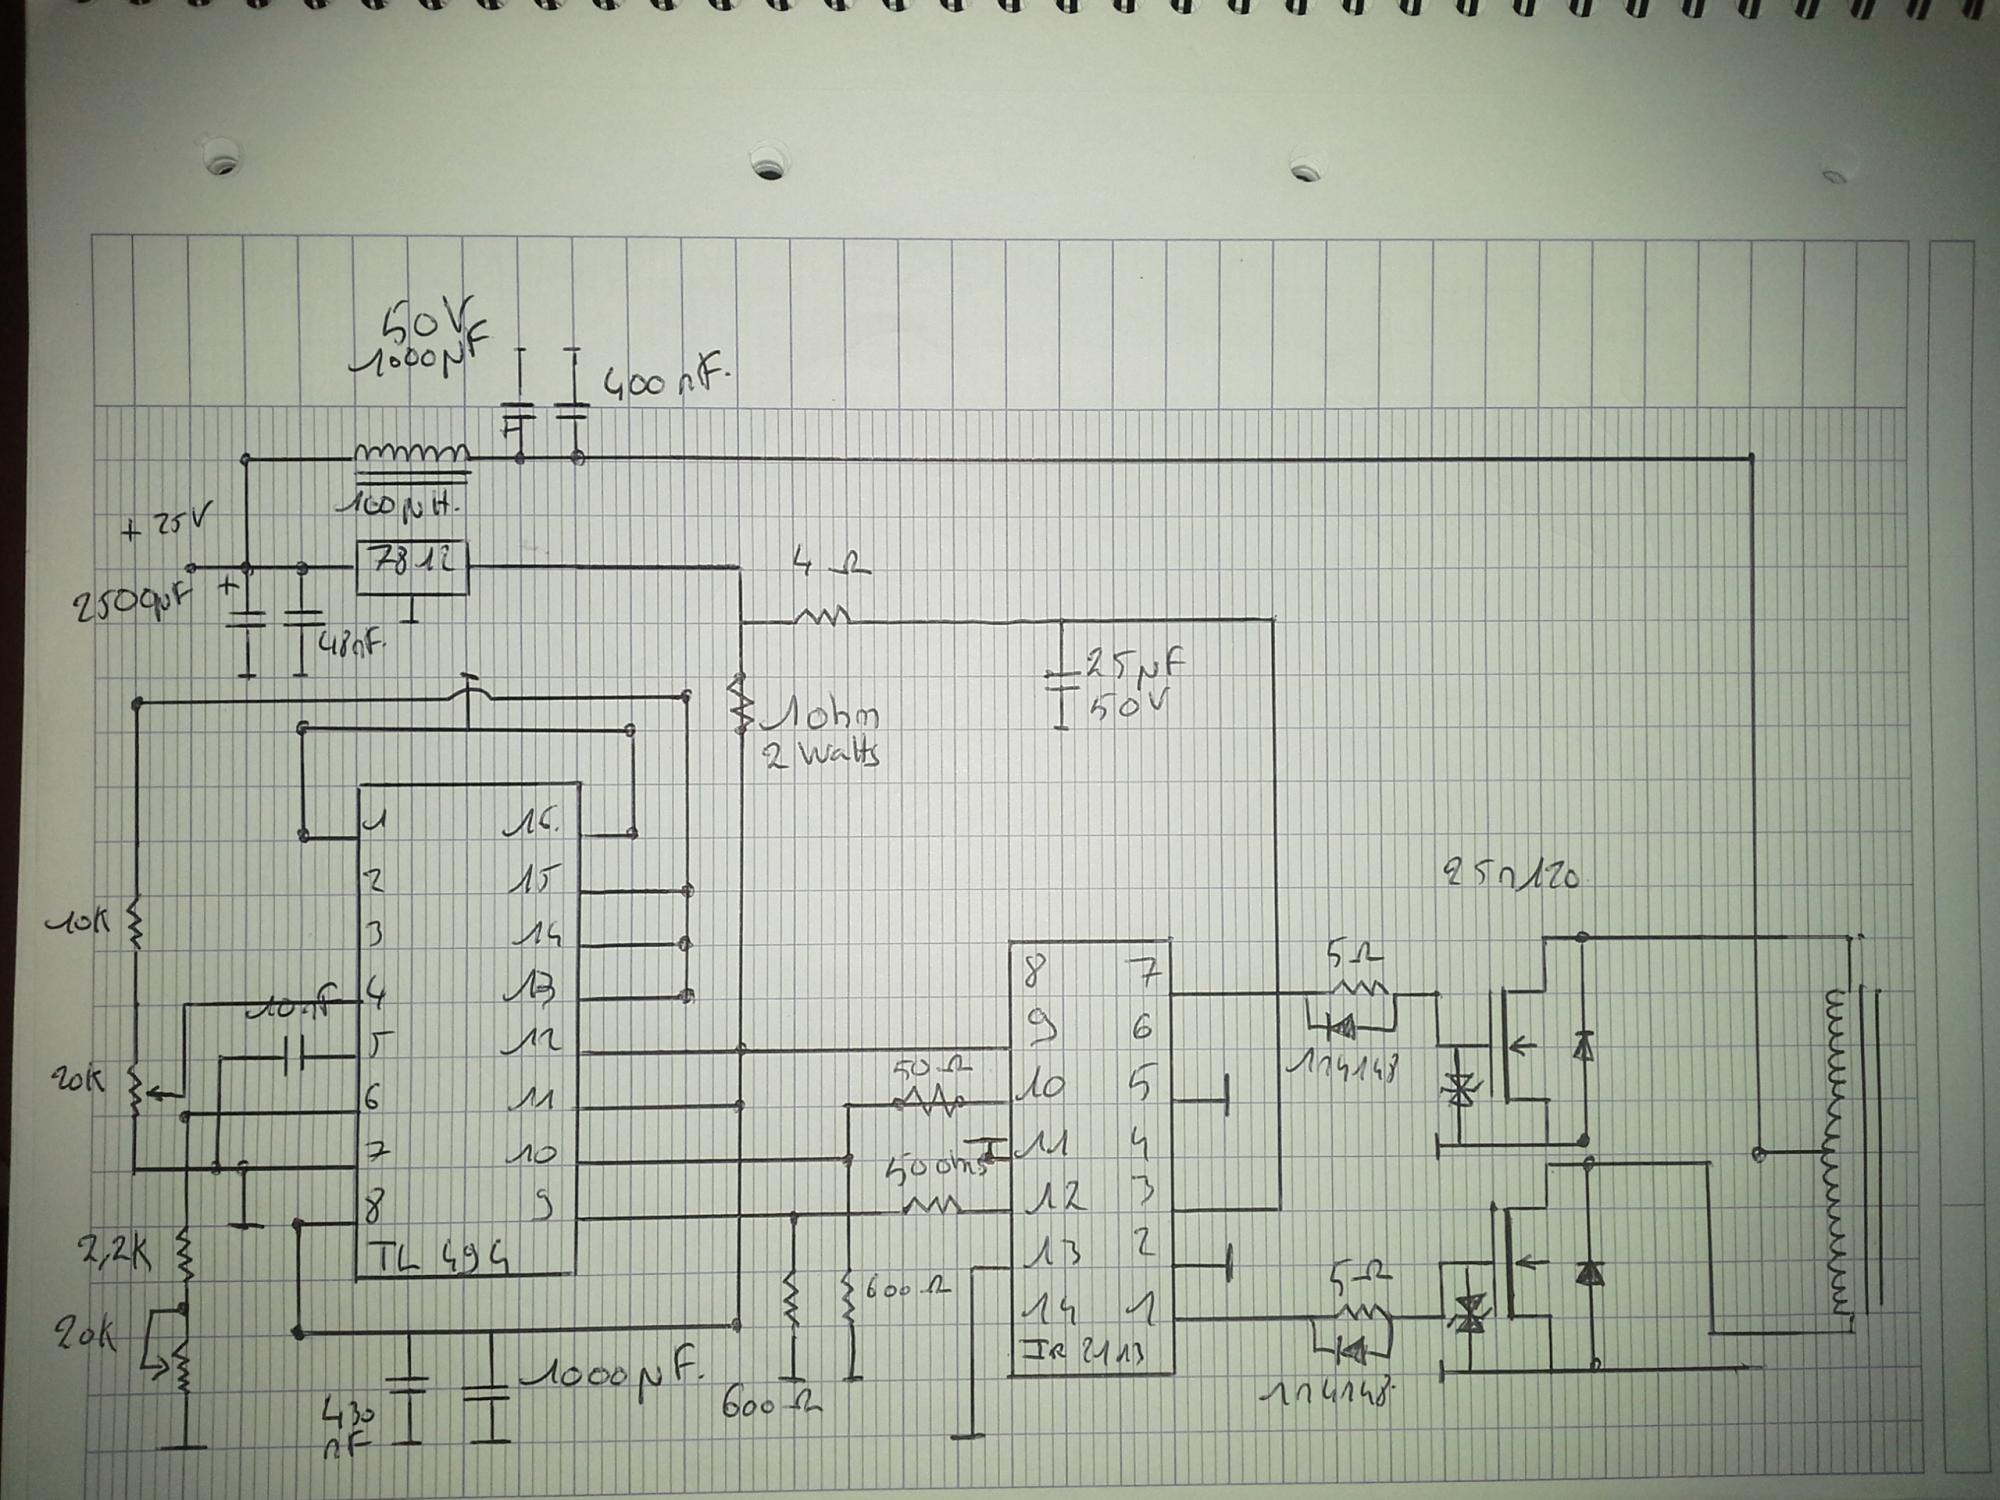 50V
1000µF
400nF.
100µH.
+ 25V
7812
4 Ω
2500µF
+
48nF.
25µF
50V
1ohm
2 Watts
1
16.
2
15
3
14
4
13
5
12
6
11
7
10
8
9
TL 494
10K
10nF
20K
2,2K
20K
430
nF
1000µF.
600Ω
600Ω
50Ω
50ohms
8
7
9
6
10
5
11
4
12
3
13
2
14
1
IR 2113
25n120
5Ω
1n4148
5Ω
1n4148.